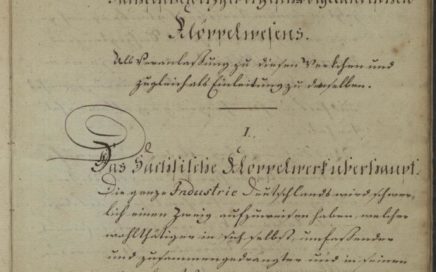 Klöppelwesens.
Als Veranlassung zu diesen Versuchen und
zugleich als Einleitung zu denselben.
I.
Das Sächsische Klöppelwerk überhaupt.
Die ganze Industrie Deutschlands wird schwer-
lich einen Zweig aufzuweisen haben, welcher
wohlthätiger in sich selbst, umfassender
und zusammengedrängter und in seinen